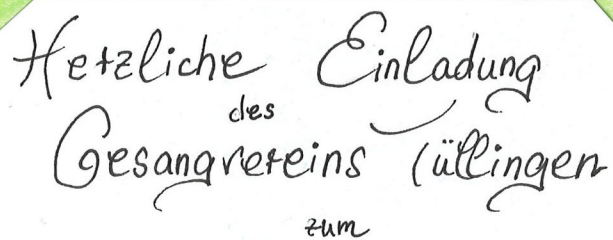 Herzliche Einladung
des
Gesangvereins Tüllingen
zum